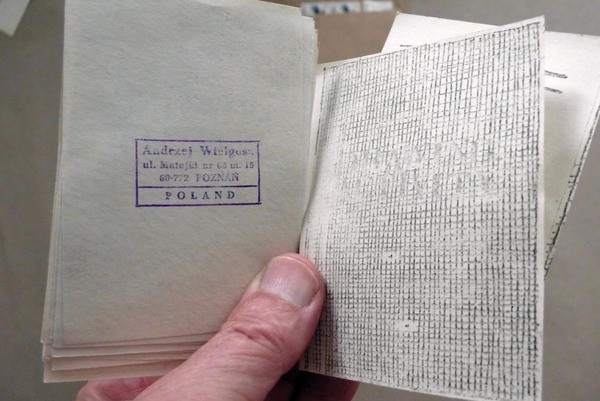 Andrzej Wielgosz
ul. Matejki nr 68 m. 15
60-772 POZNAŃ
POLAND